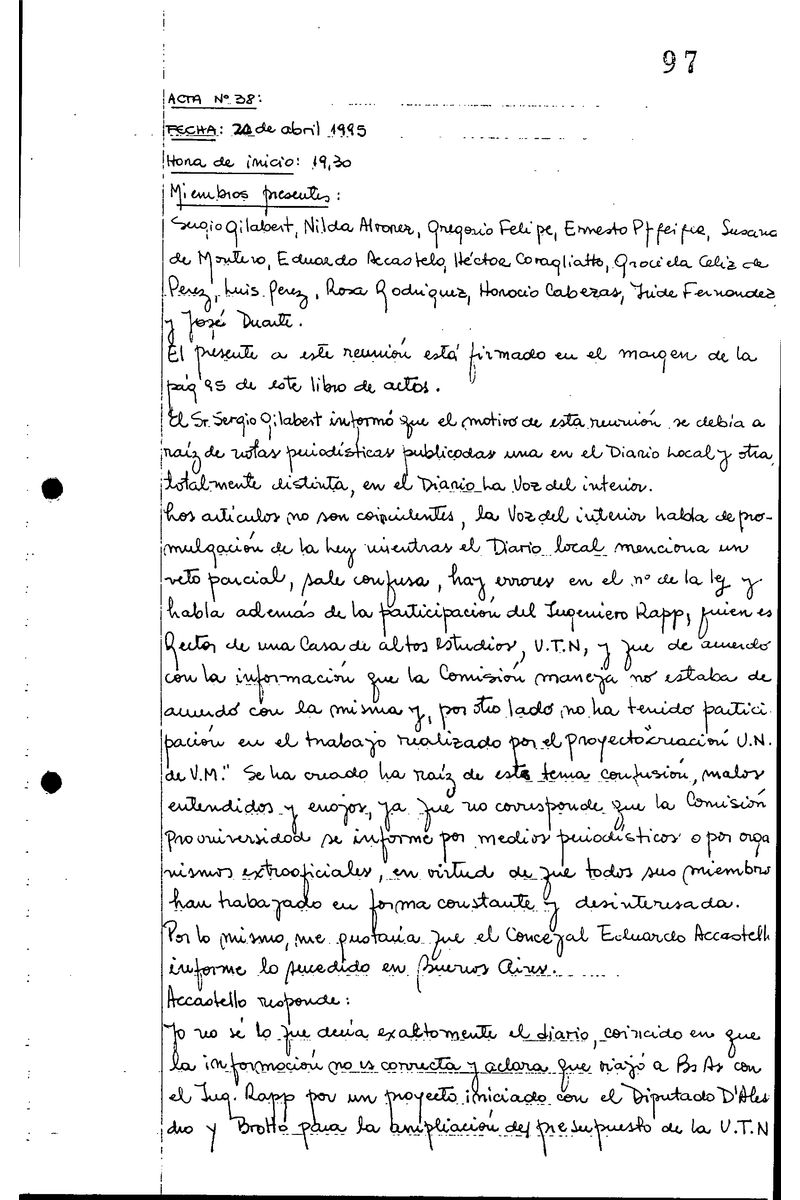 97
ACTA Nº 38:
FECHA: 20 de abril 1995
Hora de inicio: 19,30
Miembros presentes:
Sergio Gilabert, Nilda Alvarez, Gregorio Felipe, Ernesto Pffeiffer, Susana
de Montero, Eduardo Accastelo, Héctor Coragliatto, Graciela Celiz de
Perez, Luis Perez, Rosa Rodriguez, Horacio Cabezas, Fernandez
y José Duarte.
El presente a este reunión está firmado en el margen de la
pág 95 de este libro de actas.
El Sr. Sergio Gilabert informó que el motivo de esta reunión se debía a
raíz de notas periodísticas publicadas una en el Diario Local y otra,
totalmente distinta, en el Diario La Voz del interior.
Los artículos no son coincidentes, la Voz del interior habla de pro-
mulgación de la ley mientras el Diario local menciona un
veto parcial, sale confusa, hay errores en el nº de la ley y
habla además de la participación del Ingeniero Rapp, quien es
Rector de una Casa de altos estudios, U.T.N, y que de acuerdo
con la información que la Comisión maneja no estaba de
acuerdo con la misma y, por otro lado, no ha tenido partici
pación en el trabajo realizado por el proyecto "creación U.N.
de V.M." Se ha creado ha raíz de este tema confusión, malos
entendidos y enojos, ya que no corresponde que la Comisión
Prouniversidad se informe por medios periodísticos o por orga
nismos extraoficiales, en virtud de que todos sus miembro
han trabajado en forma constante y desinteresada.
Por lo mismo, me gustaría que el Concejal Eduardo Accastell
informe lo sucedido en Buenos Aires.
Accastello responde:
Yo no sé lo que decía exactomente el diario, coincido en que
la información no es correcta y aclara que viajó a Bs As con
el Ing. Rapp por un proyecto iniciado con el Diputado D'Ales
dro y Brotto para la ampliación del presupuesto de la U.T.N